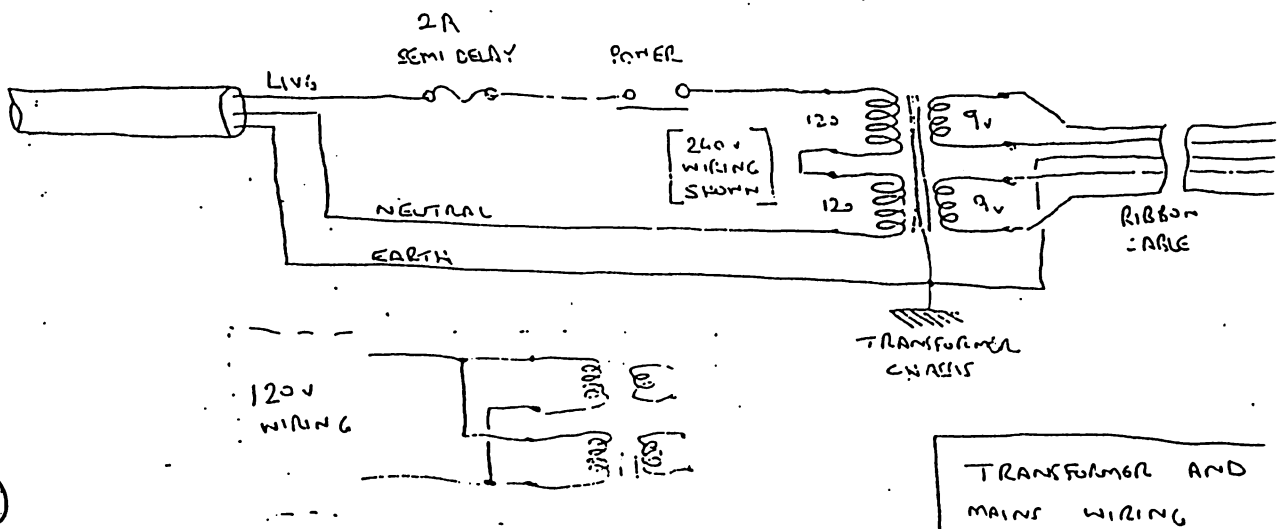 2A
SEMI DELAY
POWER
LIVE
120
9v
[240v
WIRING
SHOWN]
120
9v
NEUTRAL
EARTH
RIBBON
CABLE
TRANSFORMER
CHASSIS
120v
WIRING
TRANSFORMER AND
MAINS WIRING